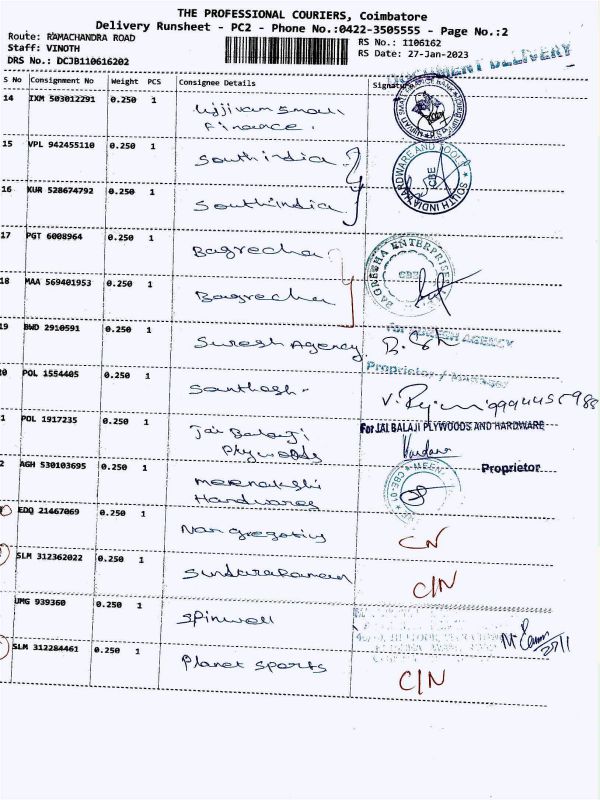 THE PROFESSIONAL COURIERS, Coimbatore
Delivery Runsheet - PC2 - Phone No.:0422-3505555 - Page No.:2
Route: RAMACHANDRA ROAD
Staff: VINOTH
DRS No.: DCJB110616202
RS No.: 1106162
RS Date: 27-Jan-2023
DOCUMENT DELIVERY
S No Consignment No Weight PCS Consignee Details Signature
14 IXM 503012291 0.250 1 Ujjivan Small
Finance.
15 VPL 942455110 0.250 1 Southindia
SOUTH INDIA HARDWARE AND TOOLS
CBE
16 KUR 528674792 0.250 1 Southindia
17 PGT 6008964 0.250 1 Bagrecha
BAGRECHA ENTERPRISES
CBE
18 MAA 569401953 0.250 1 Bagrecha
19 BWD 2910591 0.250 1 Suresh Agency
For SURESH AGENCY
Proprietor / Manager
20 POL 1554405 0.250 1 Santhosh
1 POL 1917235 0.250 1 Jai Balaji
Plywoods
For JAI BALAJI PLYWOODS AND HARDWARE
Proprietor
2 AGH 530103695 0.250 1 Meenakshi
Hardwares
EDQ 21467069 0.250 1 CN
SLM 312362022 0.250 1 C/N
UMG 939360 0.250 1 Spinwell
SLM 312284461 0.250 1 Planet Sports C/N